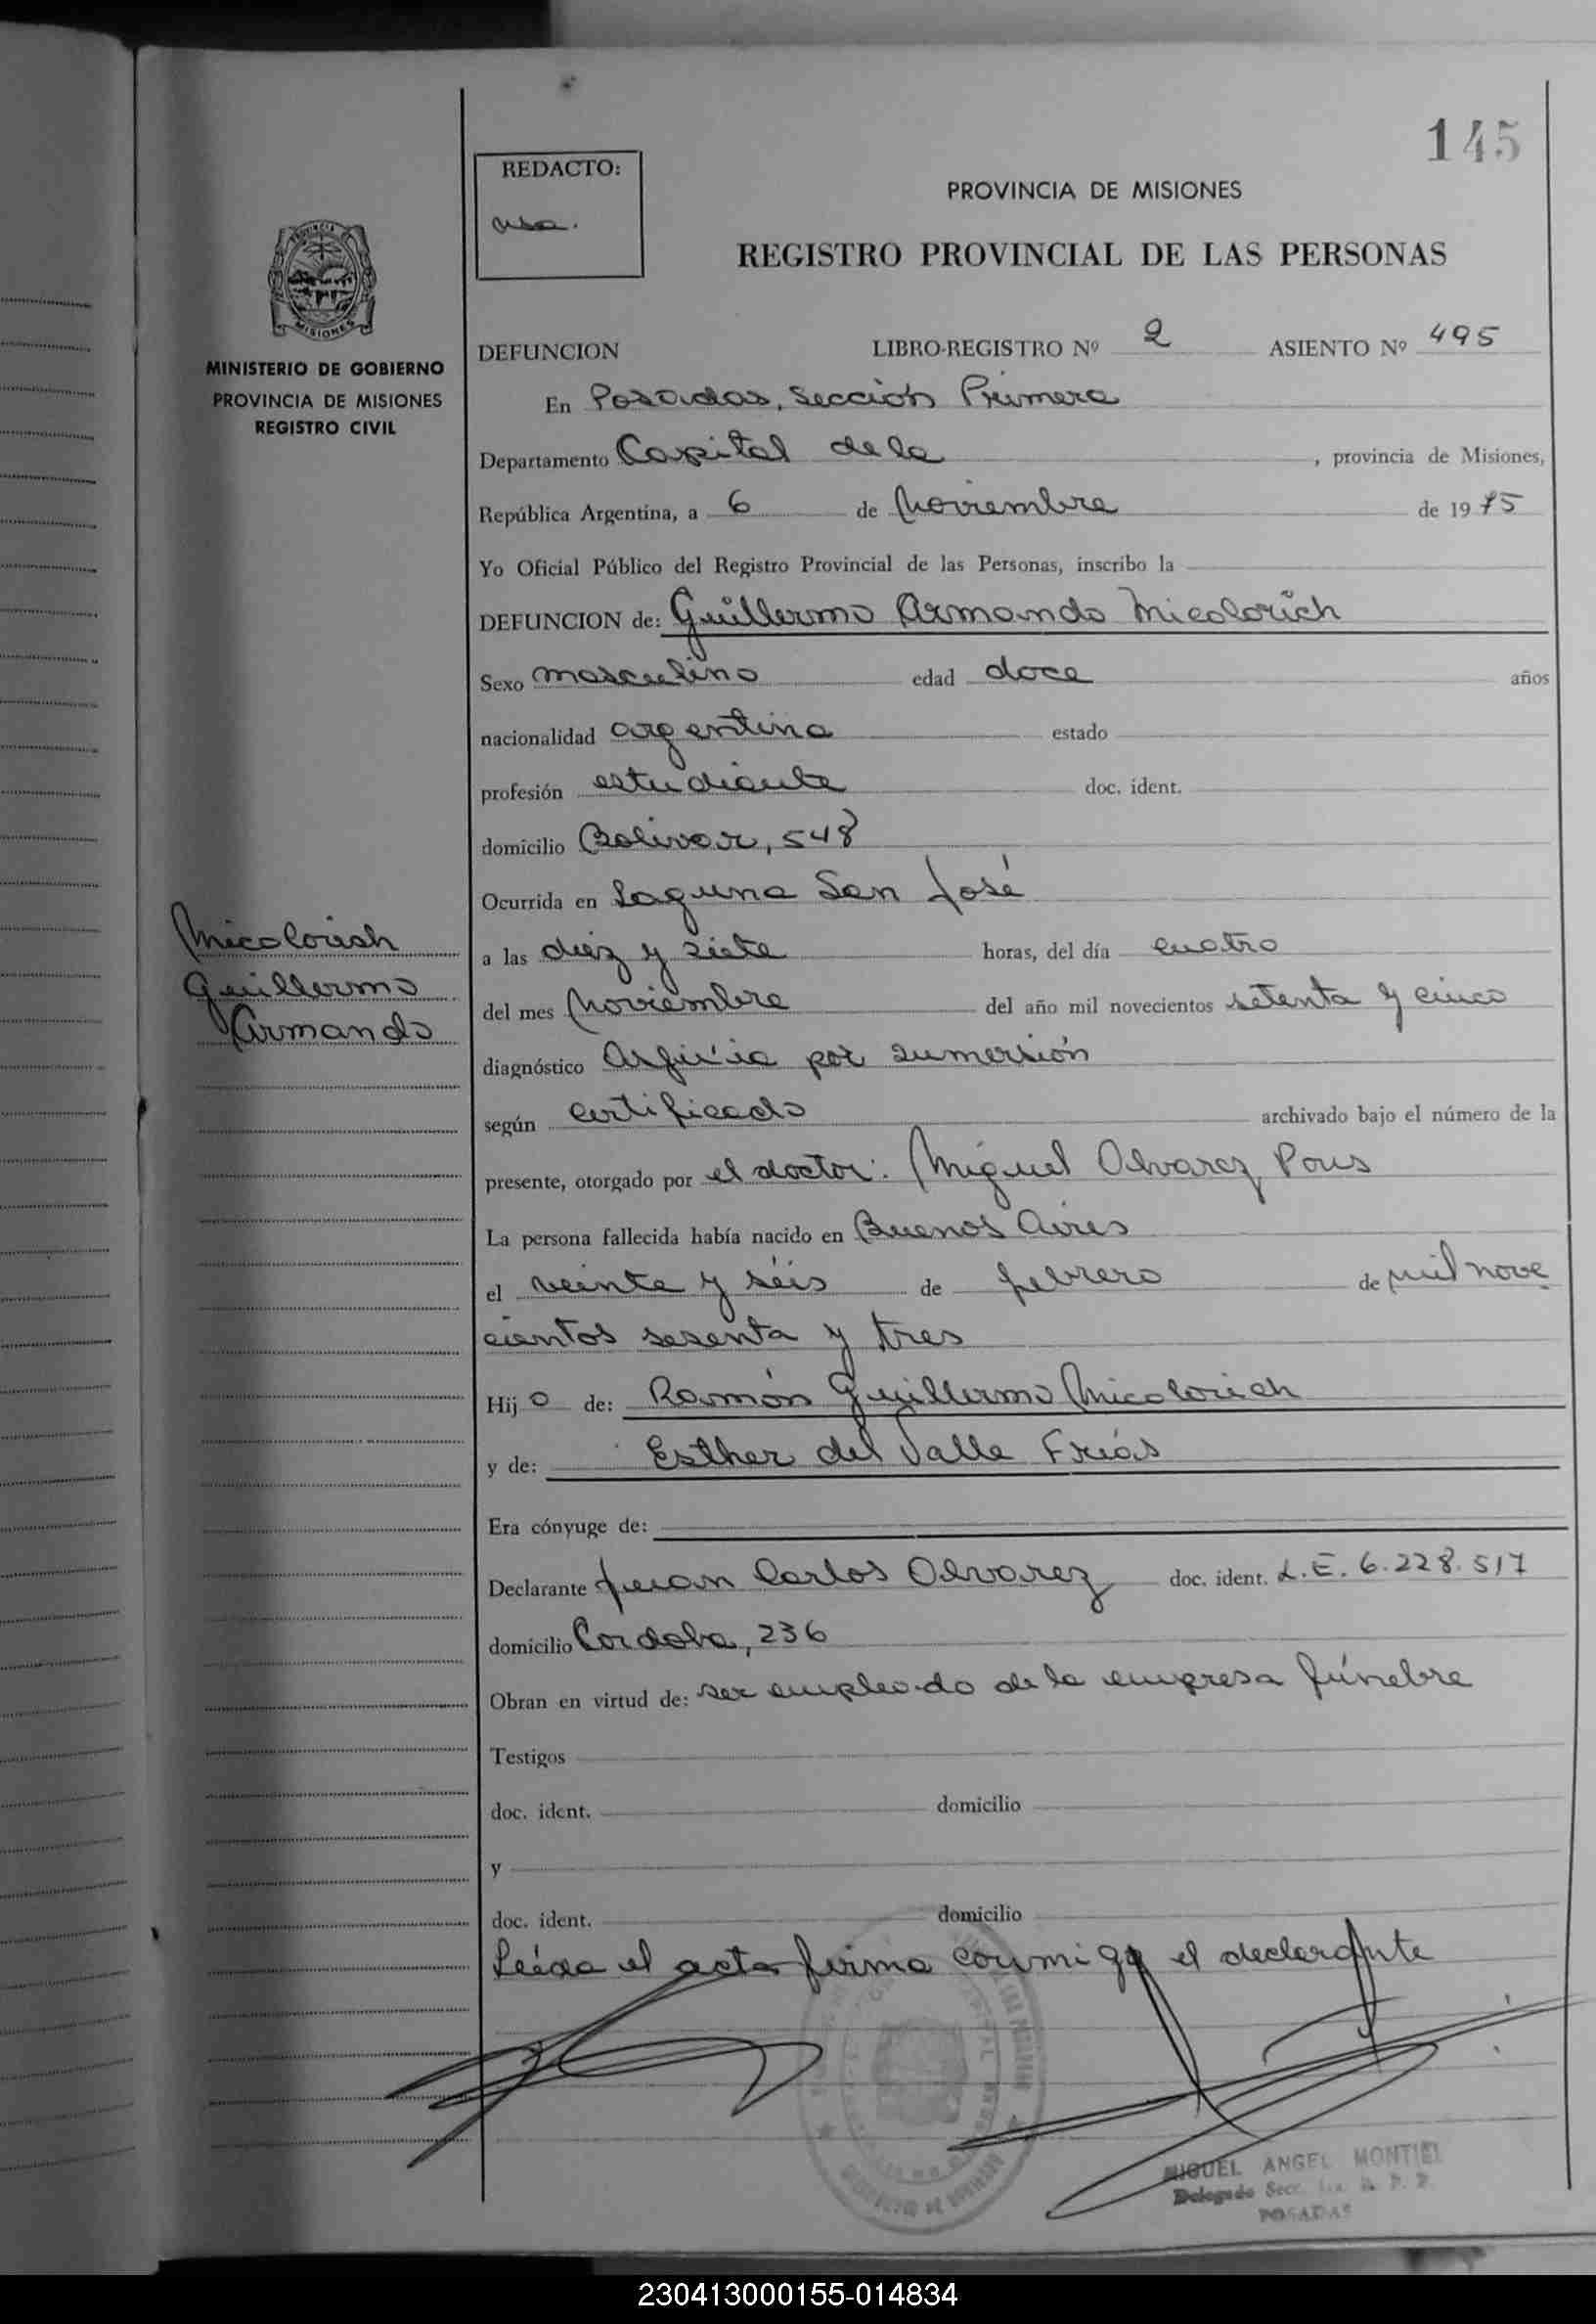 145
REDACTO:
PROVINCIA DE MISIONES
REGISTRO PROVINCIAL DE LAS PERSONAS
MISIONES
MINISTERIO DE GOBIERNO
PROVINCIA DE MISIONES
REGISTRO CIVIL
DEFUNCION LIBRO-REGISTRO Nº 2 ASIENTO Nº 495
En Posadas, Sección Primera
Departamento Capital de la , provincia de Misiones,
República Argentina, a 6 de Noviembre de 1975
Yo Oficial Público del Registro Provincial de las Personas, inscribo la
DEFUNCION de: Guillermo Armando Micolorich
Sexo masculino edad doce años
nacionalidad argentina estado
profesión estudiante doc. ident.
domicilio Bolivar, 548
Ocurrida en Laguna San José
Micolorich
Guillermo
Armando
a las diez y siete horas, del día cuatro
del mes Noviembre del año mil novecientos setenta y cinco
diagnóstico Asfixia por sumersión
según certificado archivado bajo el número de la
presente, otorgado por el doctor: Miguel Alvarez Pous
La persona fallecida había nacido en Buenos Aires
el veinte y séis de febrero de mil nove
cientos sesenta y tres
Hij o de: Ramón Guillermo Micolorich
y de: Esther del Valle Frías
Era cónyuge de:
Declarante Juan Carlos Alvarez doc. ident. L.E. 6.228.517
domicilio Cordoba, 236
Obran en virtud de: ser empleado de la empresa fúnebre
Testigos
doc. ident. domicilio
y
doc. ident. domicilio
Leída el acta firma conmigo el declarante
MIGUEL ANGEL MONTIEL
Delegado Secc. 1ra. R. P. P.
POSADAS
230413000155-014834